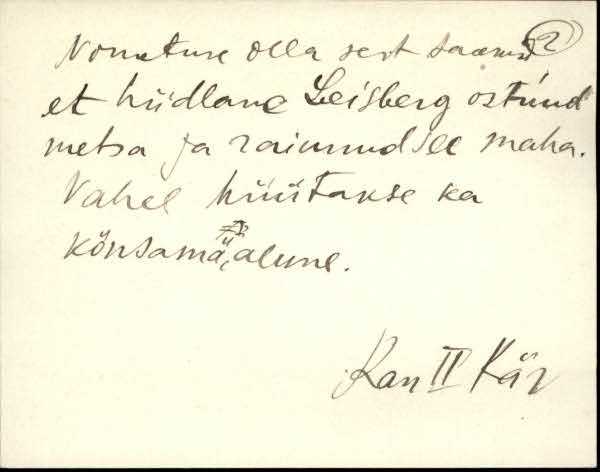 Nometuse olla sest saanud 2
et hüdlane Leisberg ostnud
metsa ja raiunud see maha.
Vahel hüütakse ka
könsamäalune.
Ran II Kär